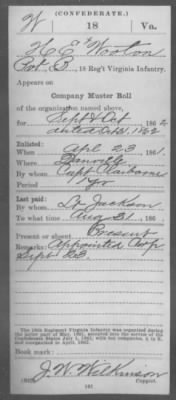 (CONFEDERATE.)
W 18 Va.
H. E. Wooton
Pvt. B, 18 Reg't Virginia Infantry.
Appears on
Company Muster Roll
of the organization named above,
for Sept & Oct, 1862
dated Oct 31, 1862
Enlisted:
When Apl 23, 1861.
Where Danville
By whom Capt Claiborne
Period 1 yr
Last paid:
By whom Dr. Jackson
To what time Aug 31, 1862
Present or absent Present
Remarks: Appointed Corp
Sept 23
The 18th Regiment Virginia Infantry was organized during the
Confederate States July 1, 1861,
and reorganized in April, 1862.
Book mark:
J. W. Wilkinson
Copyist.